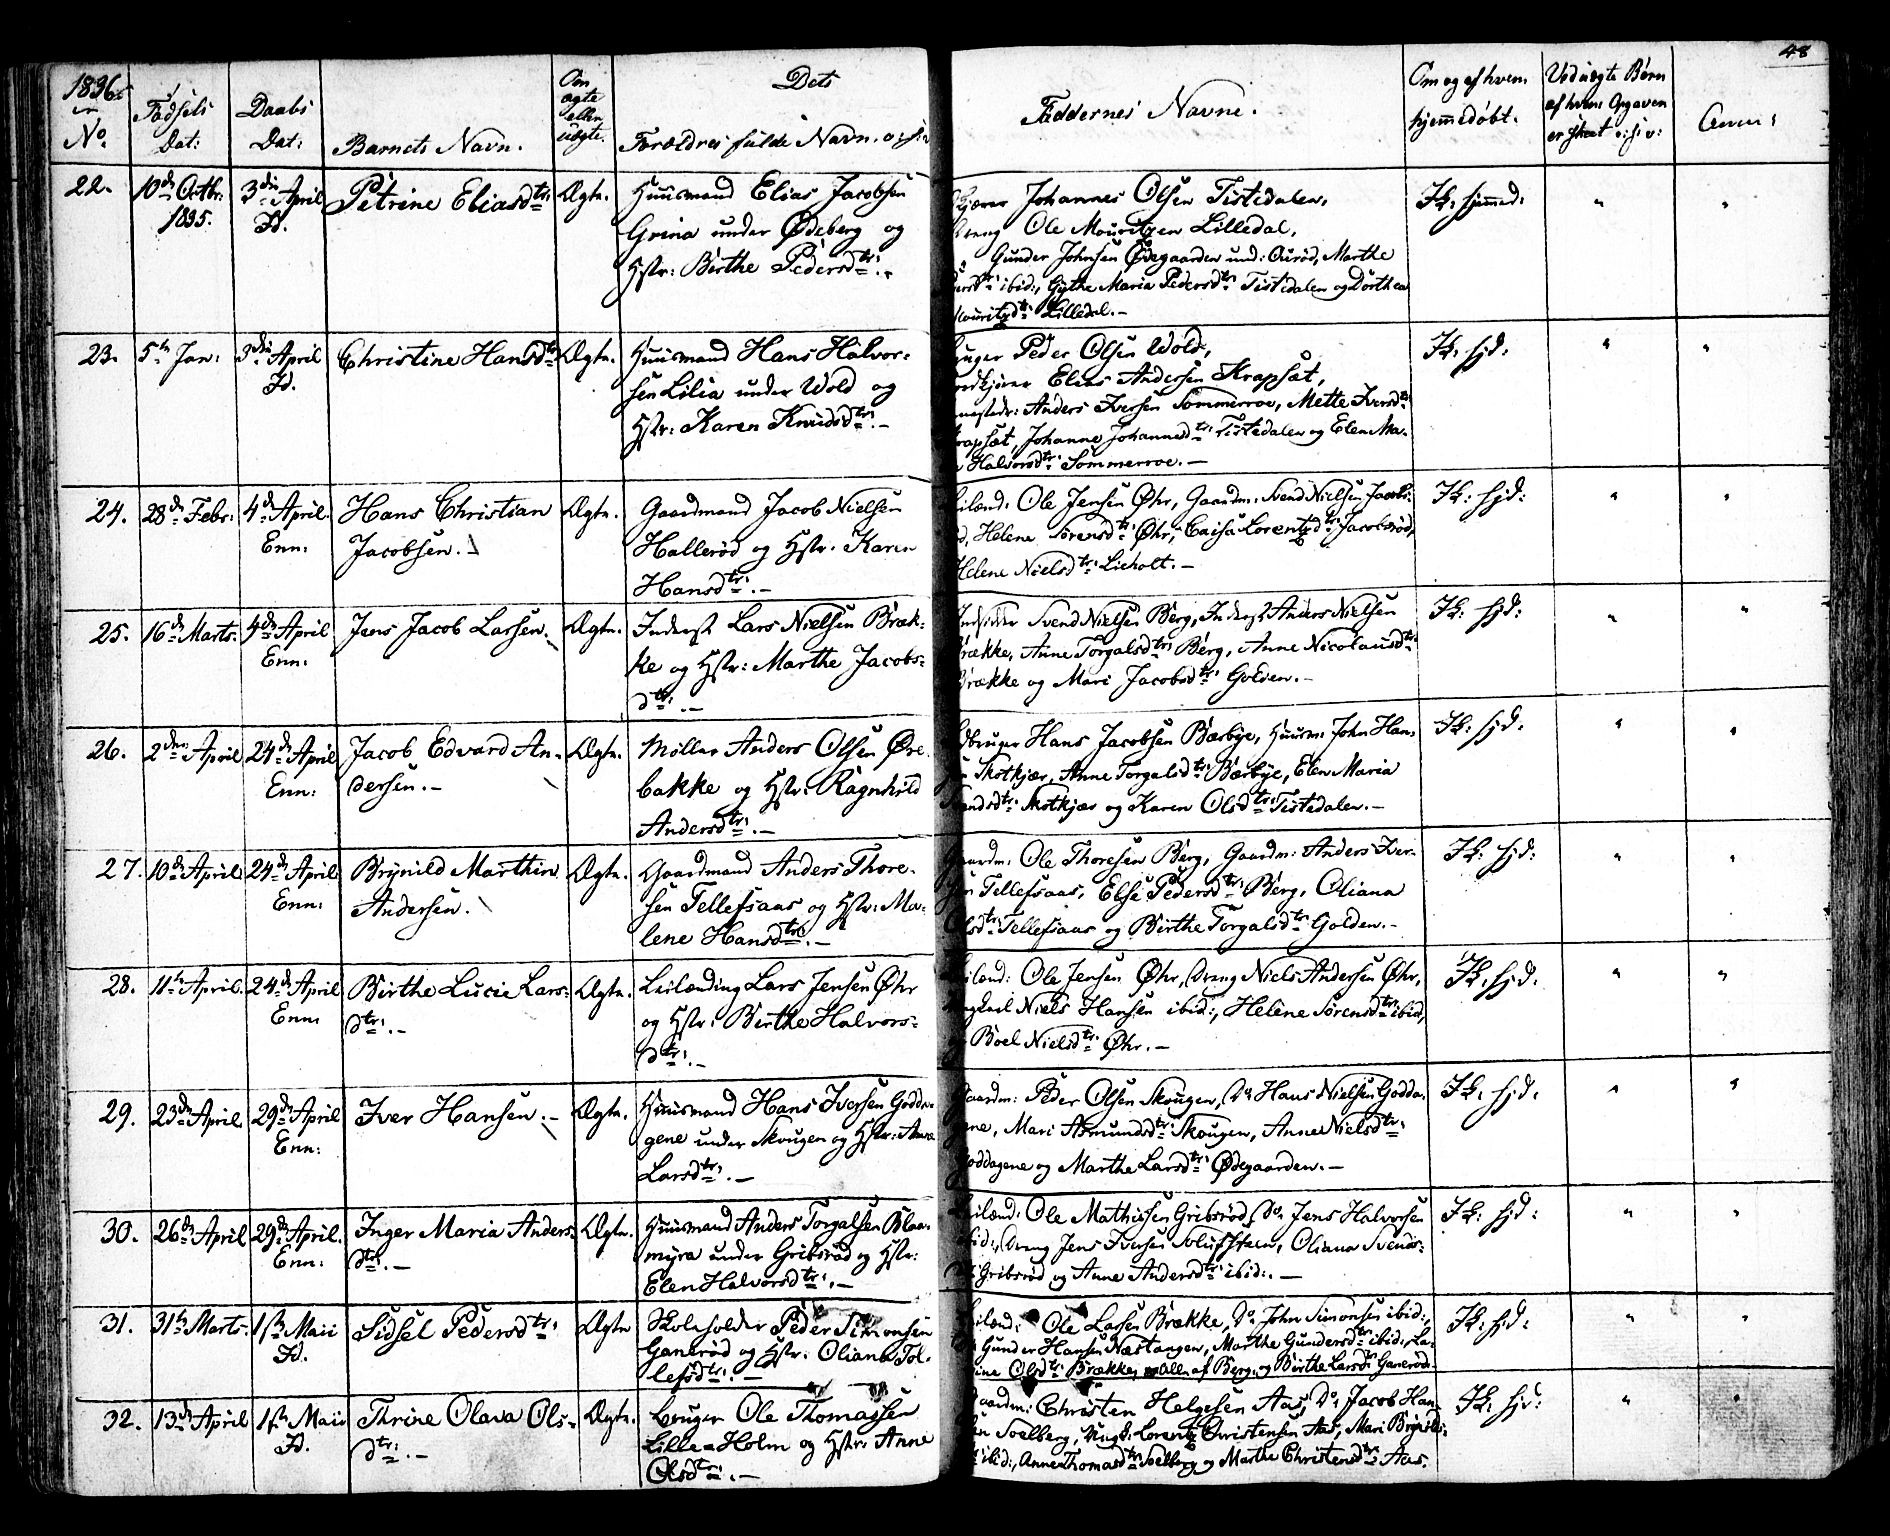 48
1836
No.
Fødsels Dat:
Daabs Dat:
Barnets Navn.
Om ægte eller uægte.
Dets
Forældres fulde Navn
Faddernes Navne.
Om og af hvem hjemmedøbt.
Ved uægte Børn af hvem Opgaven er skeet
Anm:
22. 10de Octbr: 1835. 3die April Id. Petrine Eliasdtr: Ægte.
Huusmand Elias Jacobsen
Grina under Ødeberg og
Hstr: Birthe Pedersdtr:.-
Johannes Olsen Tistedalen,
Ole Mouritzen Lilledal,
Gunder Johnsen Ødegaarden und: Marthe
ibid:, Gythe Maria Pedersdtr: Tistedalen og Dorthea
Lilledal.-
Ik: hjemmed: " "
23. 5te Jan: 3die April Id. Christine Hansdtr: Ægte.
Huusmand Hans Halvor-
sen Lilia under Wold og
Hstr: Karen Knudsdtr:.-
Peder Olsen Wold,
Elias Andersen Krapsåt,
Anders Iversen Sommerroe, Mette Iversdtr:
Johanne Johannesdtr: Tistedalen og Elen Ma-
Halvorsdtr: Sommerroe.-
Ik: hjd: " "
24. 28de Febr: 4de April Enn: Hans Christian Jacobsen. Ægte.
Gaardmand Jacob Nielsen
Hallerød og Hstr: Karen
Hansdtr:.-
Ole Jensen Øhr, Gaardm: Svend Nielsen
Helene Sørensdtr: Øhr, Caisa Lorentzdtr: Jacobsrød,
Helene Nielsdtr: Lieholt.-
Ik: hjd: " "
25. 16de Marts. 4de April Enn: Jens Jacob Larsen. Ægte.
Inderst Lars Nielsen Bræk-
ke og Hstr: Marthe Jacobs-
dtr:.-
Svend Nielsen Berg, Inderst Anders Nielsen
Brække, Anne Torgalsdtr: Berg, Anne Nicolausdtr:
Brække og Mari Jacobsdtr: Golden.-
Ik: hjd: " "
26. 2den April 24de April Enn: Jacob Edvard An-
dersen.- Ægte.
Møller Anders Olsen Øre-
bakke og Hstr: Ragnhild
Andersdtr:.-
Hans Jacobsen Bærbye, Huusm: John Han-
Skotkjær, Anne Torgalsdtr: Bærbye, Elen Maria
Skotkjær og Karen Olsdtr: Tistedalen.-
Ik: hjd: " "
27. 10de April 24de April Enn: Brynild Marthin
Andersen. Ægte.
Gaardmand Anders Thore-
sen Tellefsaas og Hstr: Ma-
lene Hansdtr:.-
Gaardm: Ole Thoresen Berg, Gaardm: Anders Iver-
sen Tellefsaas, Else Pedersdtr: Berg, Oliana
Tellefsaas og Birthe Torgalsdtr: Golden.-
Ik: hjd: " "
28. 11te April. 24de April Enn: Birthe Lucie Lars-
dtr:.- Ægte.
Leilænding Lars Jensen Øhr
og Hstr: Birthe Halvors-
dtr:.-
Ole Jensen Øhr, Dreng Niels Andersen Øhr,
Niels Hansen ibid:, Helene Sørensdtr: ibid,
Boel Nielsdtr: Øhr.-
Ik: hjd: " "
29. 23de April 29de April Enn: Iver Hansen.- Ægte.
Huusmand Hans Iversen Godda-
gene under Skougen og Hstr: Anne
Larsdtr:.-
Gaardm: Peder Olsen Skougen, Do Hans Nielsen Godda-
gene, Mari Asmundsdtr: Skougen, Anne Nielsdtr:
Goddagene og Marthe Larsdtr: Ødegaarden.-
Ik: hjd: " "
30. 26de April 29de April. Enn: Inger Maria Anders-
dtr:.- Ægte.
Huusmand Anders Torgalsen Blaa-
myra under Gribsrød og Hstr:
Elen Halvorsdtr:.-
Ole Mathissen Gribsrød, Do Jens Halvorsen
ibid:, Dreng Jens Iversen Oliana Svends-
Gribsrød og Anne Andersdtr: ibid:.-
Ik: hjd: " "
31. 31te Marts. 1ste Maii Id. Sidsel Pedersdtr: Ægte
Skoleholder Peder Simonsen
Ganerød og Hstr: Oliana Tol-
lefsdtr:.-
Ole Larsen Brække, Do John Simonsen ibid:,
Gunder Hansen Næstangen, Marthe Gundersdtr: ibid:,
Olsdtr: Brække, alle af Berg, og Birthe Larsdtr: Ganerød.
Ik: hjd: " "
32. 13de April 1ste Maii Id. Thrine Olava Ols-
dtr:.- Ægte.
Bruger Ole Thomassen
Lille-Holm og Hstr: Anne
Olsdtr:.-
Gaardm: Christen Helgesen Aas, Do Jacob Han-
sen Soelberg, Ungk: Lorentz Christensen Aas, Mari
ibid:, Anne Thomasdtr: Soelberg og Marthe Christensdtr: Aas.
Ik: hjd: " "